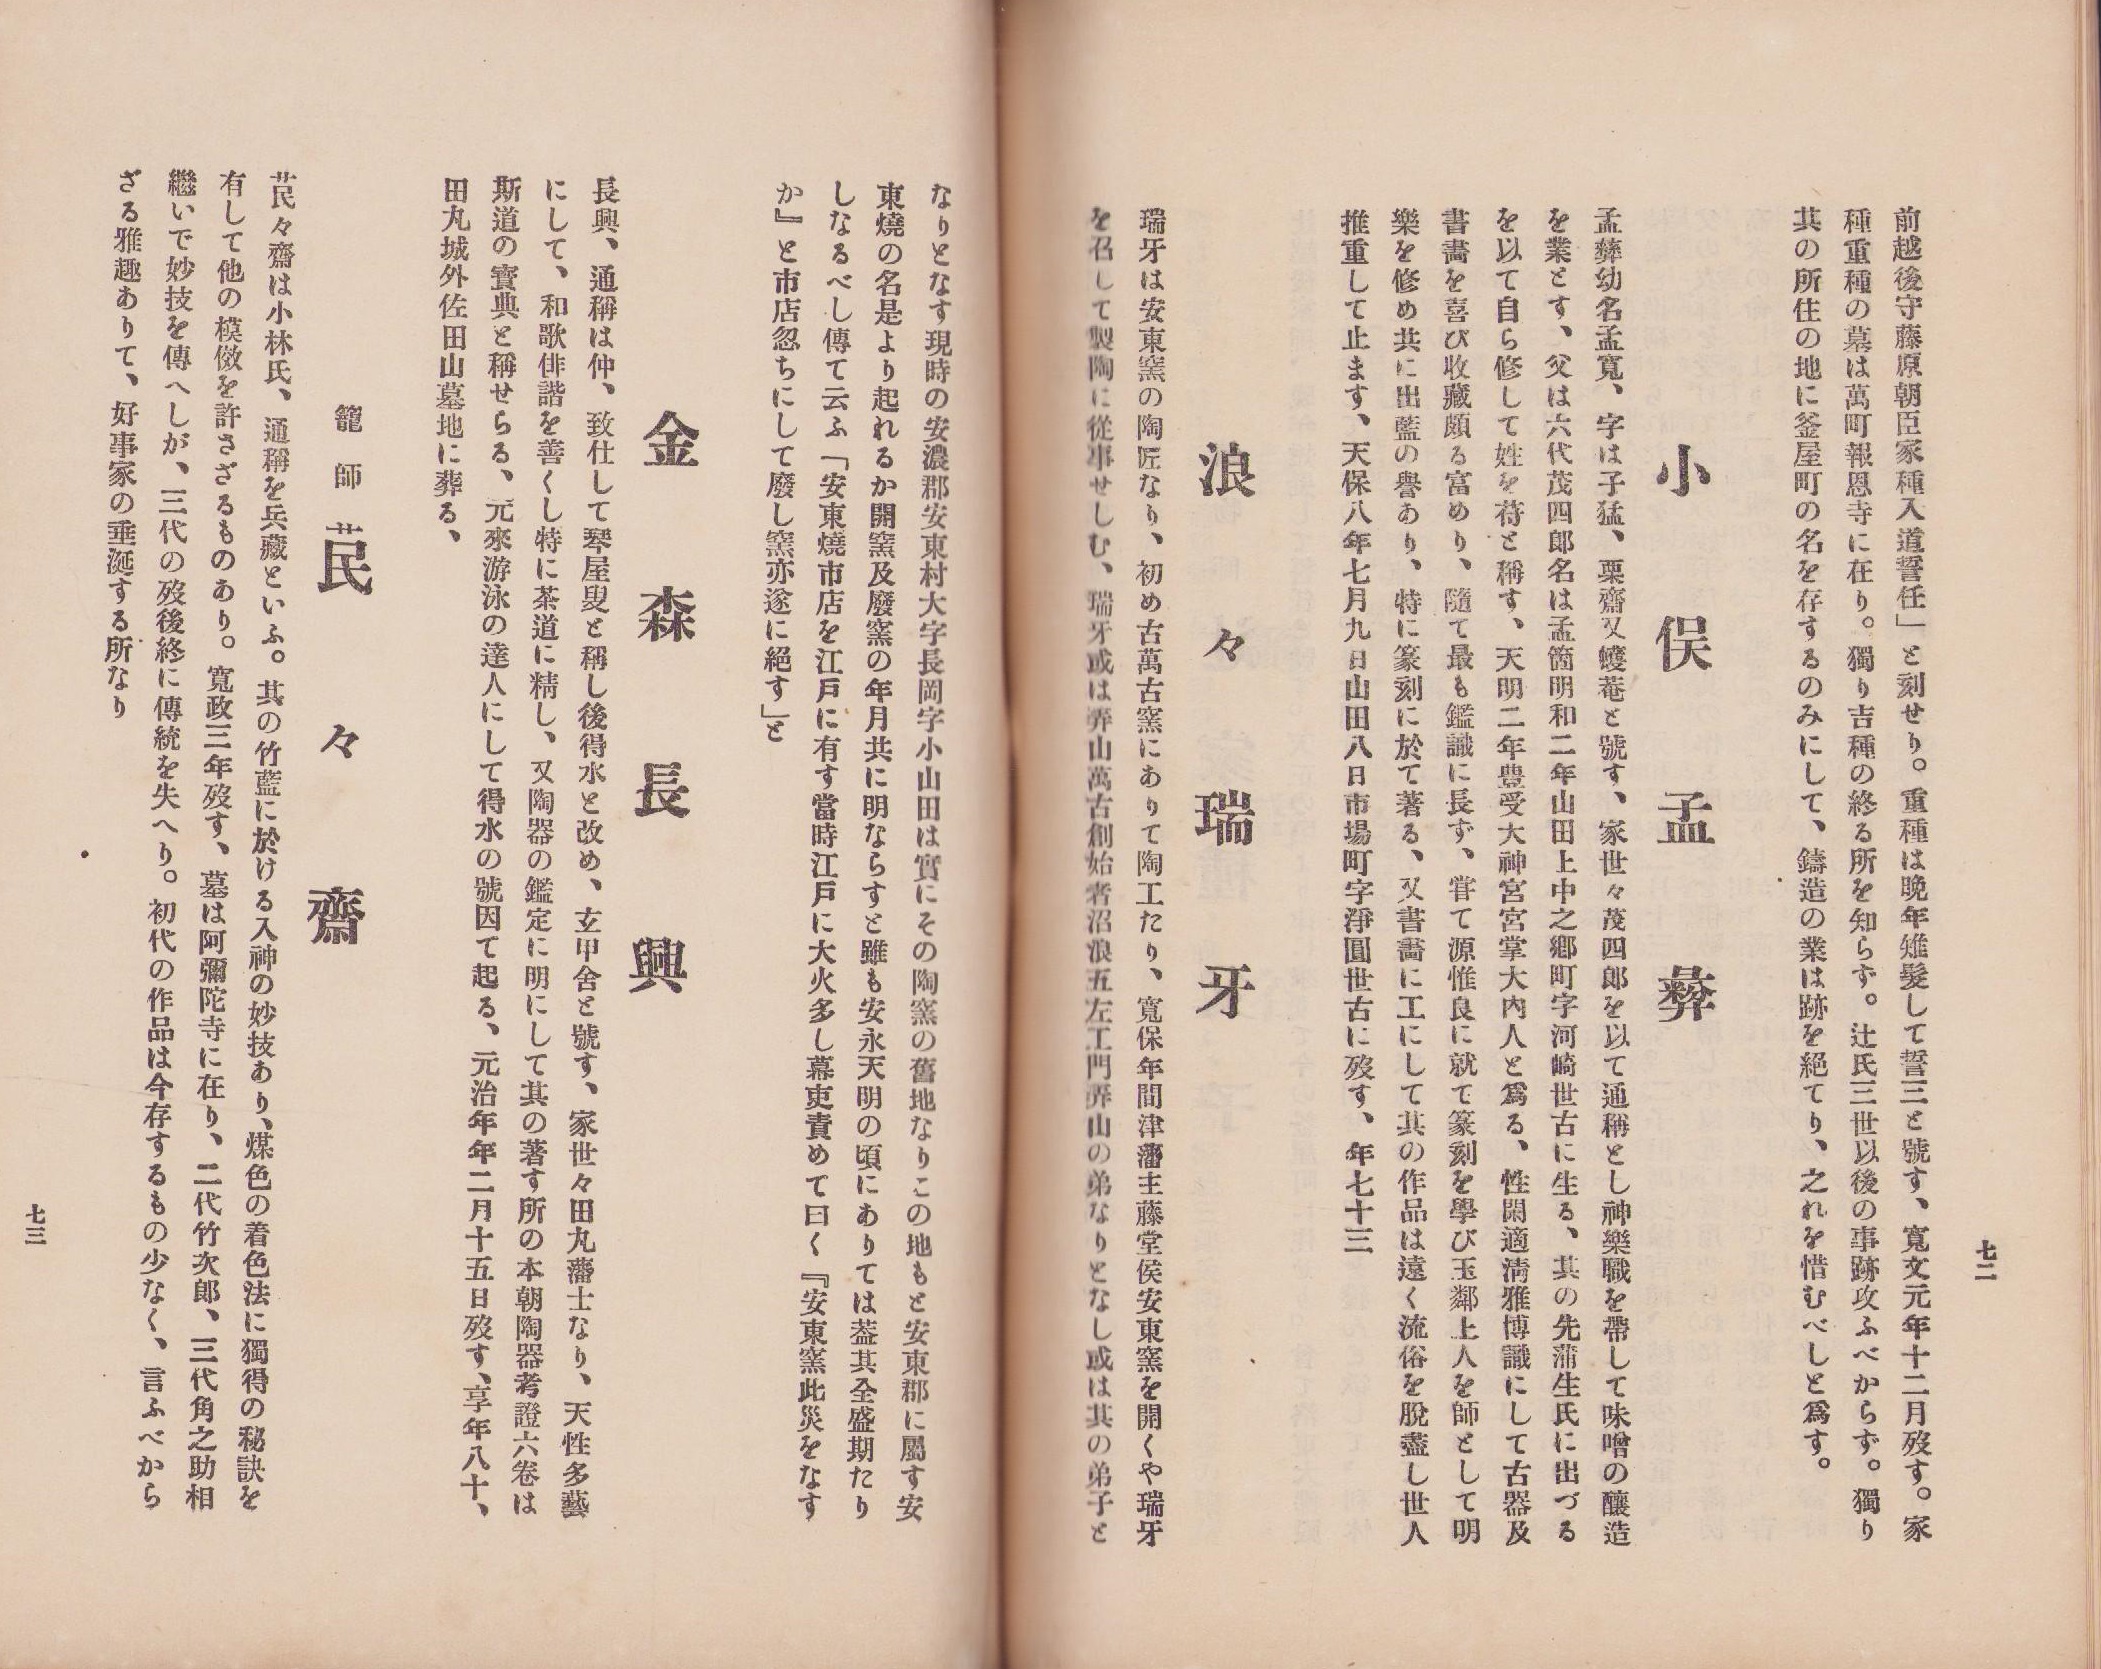 七二
前越後守藤原朝臣家種入道誓任」と刻せり。重種は晩年雉髮して誓三と號す、寬文元年十二月歿す。家
種重種の墓は萬町報恩寺に在り。獨り吉種の終る所を知らず。辻氏三世以後の事跡攻ふべからず。獨り
其の所住の地に釜屋町の名を存するのみにして、鑄造の業は跡を絕てり、之れを惜むべしと爲す。
小俣孟彝
孟彝幼名孟寬、字は子猛、栗齋又蠖菴と號す、家世々茂四郎を以て通稱とし神樂職を帶して味噌の釀造
を業とす、父は六代茂四郎名は孟箇明和二年山田上中之鄕町字河崎世古に生る、其の先蒲生氏に出づる
を以て自ら修して姓を苻と稱す、天明二年豊受大神宮宮掌大內人と爲る、性閑適淸雅博識にして古器及
書畵を喜び收藏頗る富めり、隨て最も鑑識に長ず、甞て源惟良に就て篆刻を學び玉鄰上人を師として明
樂を修め共に出藍の譽あり、特に篆刻に於て著る、又書畵に工にして其の作品は遠く流俗を脫盡し世人
推重して止ます、天保八年七月九日山田八日市場町字淨圓世古に歿す、年七十三
浪々瑞牙
瑞牙は安東窯の陶匠なり、初め古萬古窯にありて陶工たり、寬保年間津藩主藤堂侯安東窯を開くや瑞牙
を召して製陶に從事せしむ、瑞牙或は弄山萬古創始者沼浪五左工門弄山の弟なりとなし或は其の弟子と
なりとなす現時の安濃郡安東村大字長岡字小山田は實にその陶窯の舊地なりこの地もと安東郡に屬す安
東燒の名是より起れるか開窯及廢窯の年月共に明ならすと雖も安永天明の頃にありては葢其全盛期たり
しなるべし傳て云ふ「安東燒市店を江戶に有す當時江戶に大火多し幕吏責めて曰く『安東窯此災をなす
か』と市店忽ちにして廢し窯亦遂に絕す」と
金森長興
長興、通稱は仲、致仕して琴屋叟と稱し後得水と改め、玄甲舍と號す、家世々田丸藩士なり、天性多藝
にして、和歌俳諧を善くし特に茶道に精し、又陶器の鑑定に明にして其の著す所の本朝陶器考證六卷は
斯道の寶典と稱せらる、元來游泳の達人にして得水の號因て起る、元治年年二月十五日歿す、享年八十、
田丸城外佐田山墓地に葬る、
籠師 苠々齋
苠々齋は小林氏、通稱を兵藏といふ。其の竹藍に於ける入神の妙技あり、煤色の着色法に獨得の秘訣を
有して他の模倣を許さざるものあり。寬政三年歿す、墓は阿彌陀寺に在り、二代竹次郎、三代角之助相
繼いで妙技を傳へしが、三代の歿後終に傳統を失へり。初代の作品は今存するもの少なく、言ふべから
ざる雅趣ありて、好事家の垂涎する所なり
七三